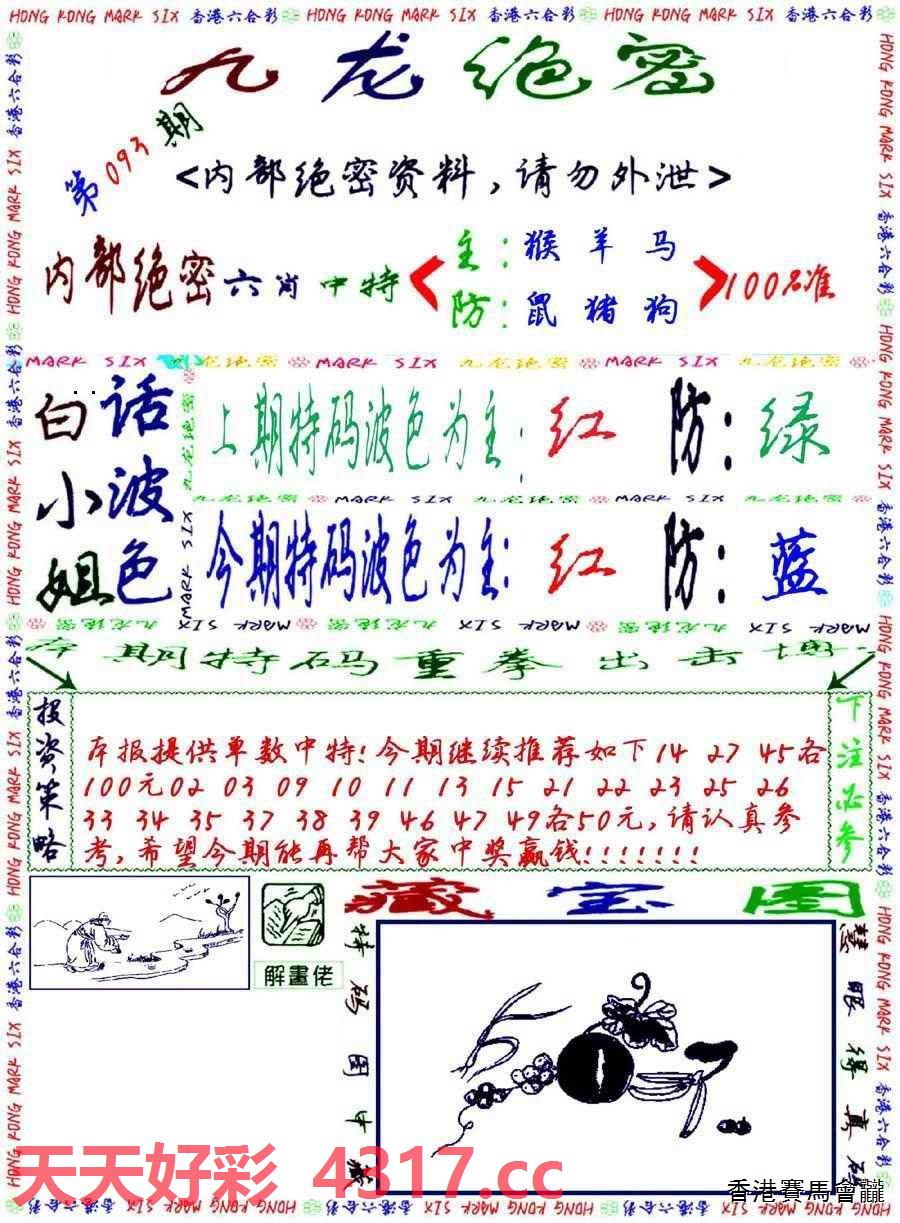 HONG KONG MARK SIX 香港六合彩 HONG KONG MARK SIX 香港六合彩 HONG KONG MARK SIX 香港六合彩
九龙绝密
第093期
<内部绝密资料,请勿外泄>
内部绝密六肖中特
主:猴羊马
防:鼠猪狗
100%准
MARK SIX 九龙绝密 MARK SIX 九龙绝密 MARK SIX 九龙绝密
白话
小波
姐色
上期特码波色为主:红 防:绿
九龙绝密 MARK SIX 九龙绝密 MARK SIX 九龙绝密
今期特码波色为主:红 防:蓝
九龙绝密 MARK SIX 九龙绝密 MARK SIX 九龙绝密 MARK SIX
期特码重拳出击
投资策略
本报提供单数中特!今期继续推荐如下14 27 45各
100元02 03 09 10 11 13 15 21 22 23 25 26
33 34 35 37 38 39 46 47 49各50元,请认真参
考,希望今期能再帮大家中奖赢钱!!!!!!!
下注必参
解畫佬
藏宝图
特码图中
慧眼得真
天天好彩 4317.cc
香港賽馬會